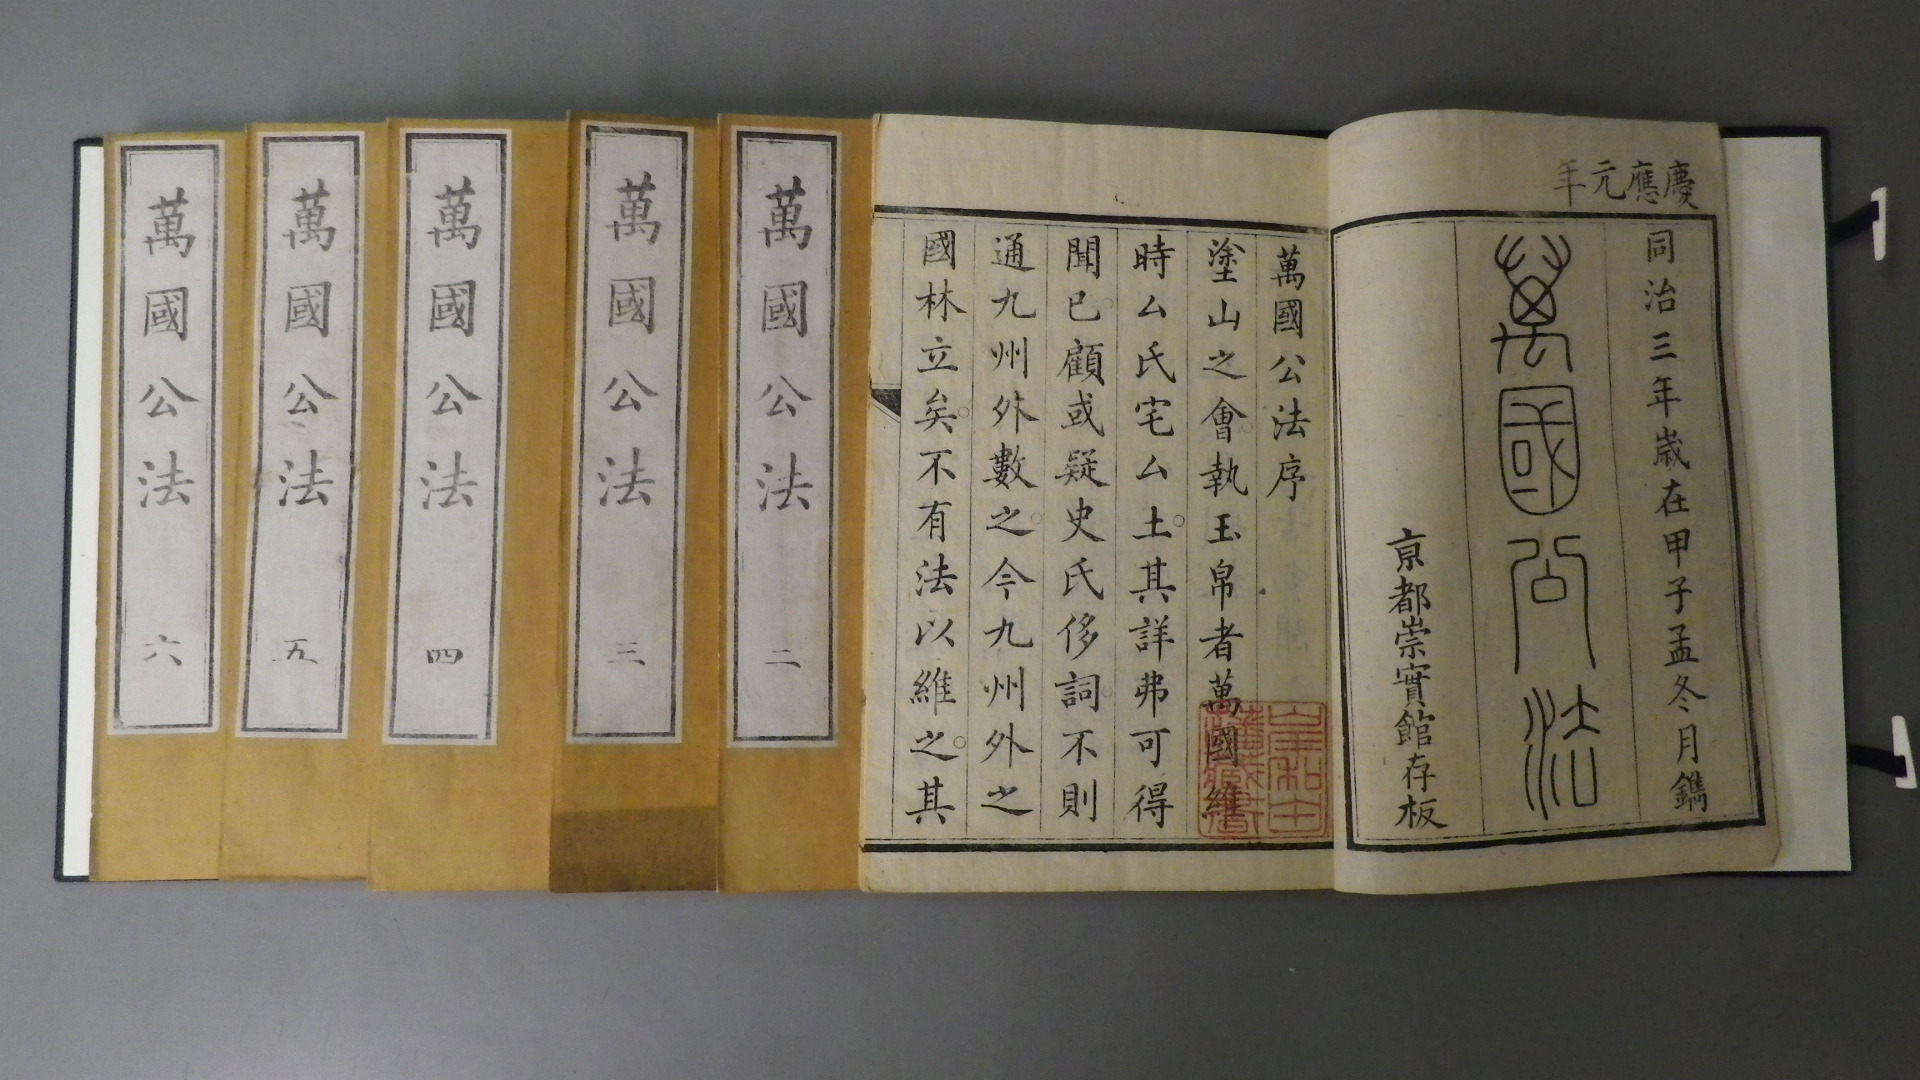 慶應元年
同治三年歳在甲子孟冬月鐫
萬國公法
亰都崇實館存板
萬國公法序
塗山之會。執玉帛者萬國維
時厶氏宅厶土。其詳弗可得
聞已。顧或疑史氏侈詞。不則
通九州外數之。今九州外之
國林立矣。不有法以維之。其
萬國公法 二
萬國公法 三
萬國公法 四
萬國公法 五
萬國公法 六